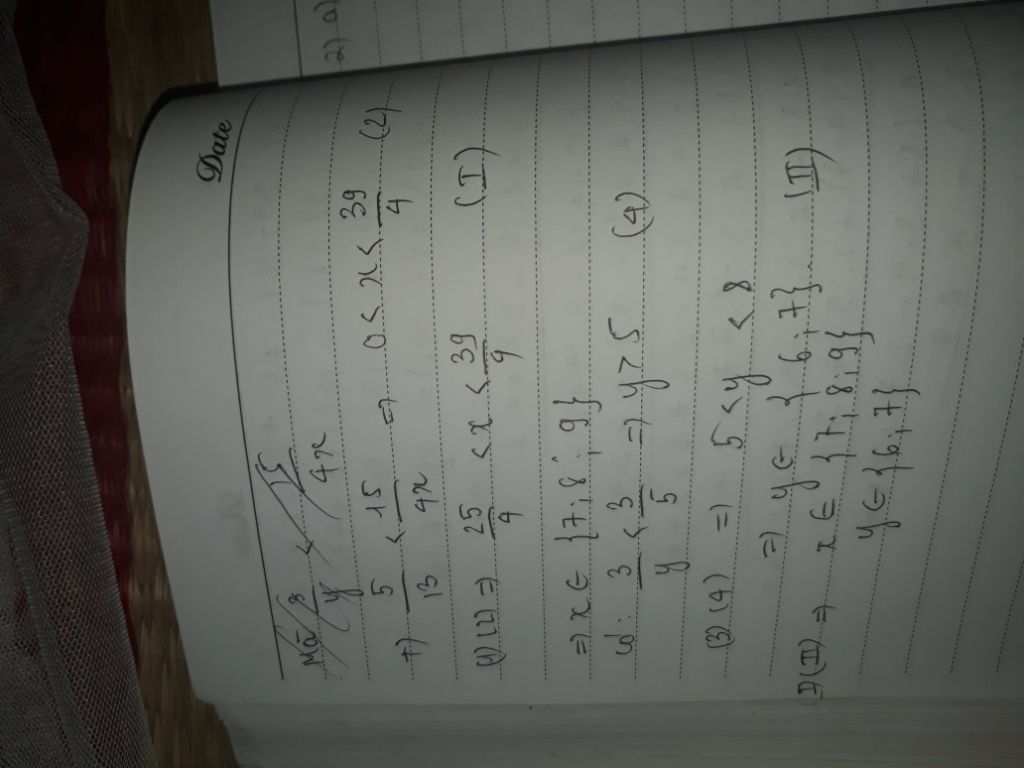 27. a)
Date
Mà 3/y < 15/4x
+) 5/13 < 15/4x => 0 < x < 39/4 (2)
(1)(2) => 25/4 < x < 39/4 (I)
=> x ∈ {7; 8; 9}
3/y < 3/5 => y > 5 (4)
(3)(4) => 5 < y < 8
=> y ∈ {6; 7} (II)
(I)(II) => x ∈ {7; 8; 9}
y ∈ {6; 7}